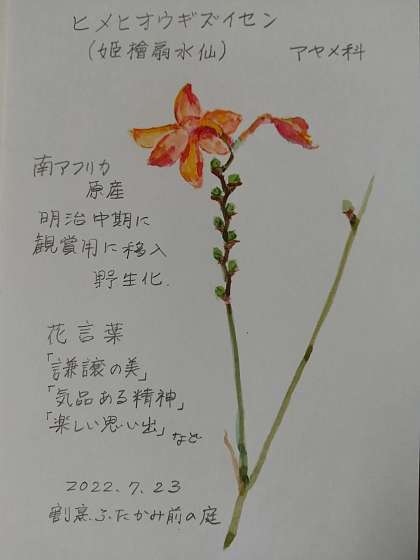 ヒメヒオウギズイセン
(姫檜扇水仙) アヤメ科
南アフリカ
原産
明治中期に
観賞用に移入
野生化.
花言葉
「謙譲の美」
「気品ある精神」
「楽しい思い出」など
2022.7.23
割烹ふたかみ前の庭